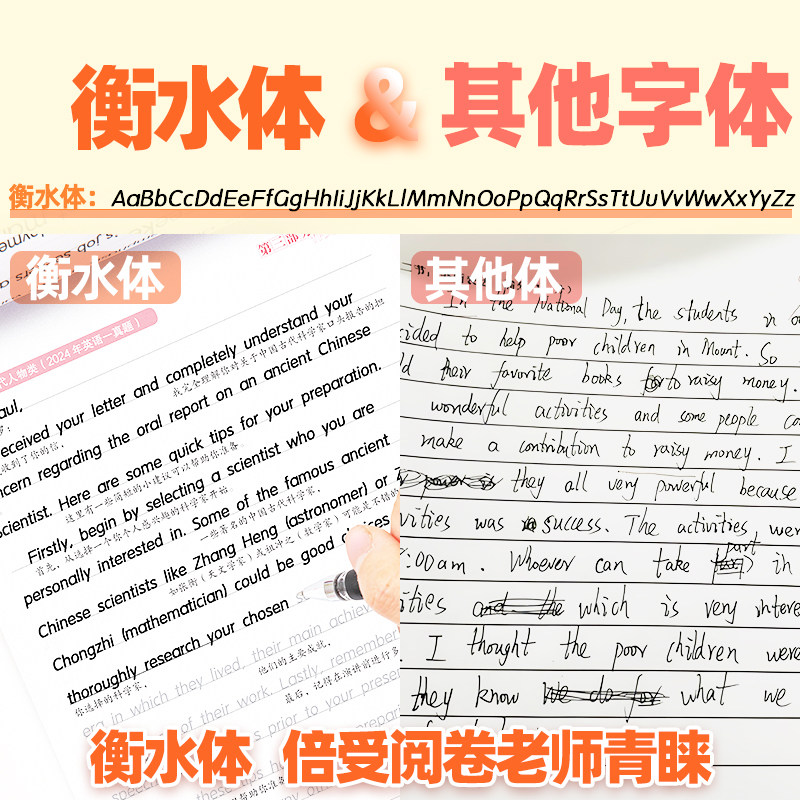 衡水体 & 其他字体
衡水体: AaBbCcDdEeFfGgHhIiJjKkLlMmNnOoPpQqRrSsTtUuVvWwXxYyZz
衡水体
第三部
代人物类(2024年英语一真题)
aul,
eceived your letter and completely understand your
收到了你的信,
我完全理解你对关于中国古代科学家口头报告的担
ncern regarding the oral report on an ancient Chinese
scientist. Here are some quick tips for your preparation.
这里有一些简短的小建议可以帮助你准备
Firstly, begin by selecting a scientist who you are
首先,从选择一个你个人感兴趣的科学家开始
personally interested in. Some of the famous ancient
一些著名的中国古代科学家,
Chinese scientists like Zhang Heng (astronomer) or
如张衡(天文学家)或祖冲之(数学家)可能是不错的
Chongzhi (mathematician) could be good choices
thoroughly research your chosen
你选择的科学家,
era in which they lived, their main achiev
他们的主要成就,
of their work. Lastly, remember
最后,记得在演讲前进行多
s prior to your prese
其他体
In the National Day, the students in o
cided to help poor children in Mount. So
ld their favorite books to raisy money.
wonderful activities and some people co
make a contribution to raisy money. I
they all very powerful because
vities was success. The activities, wer
:00am. Whoever can take part in
ities which is very intere
I thought the poor children were
they know what we
衡水体 倍受阅卷老师青睐